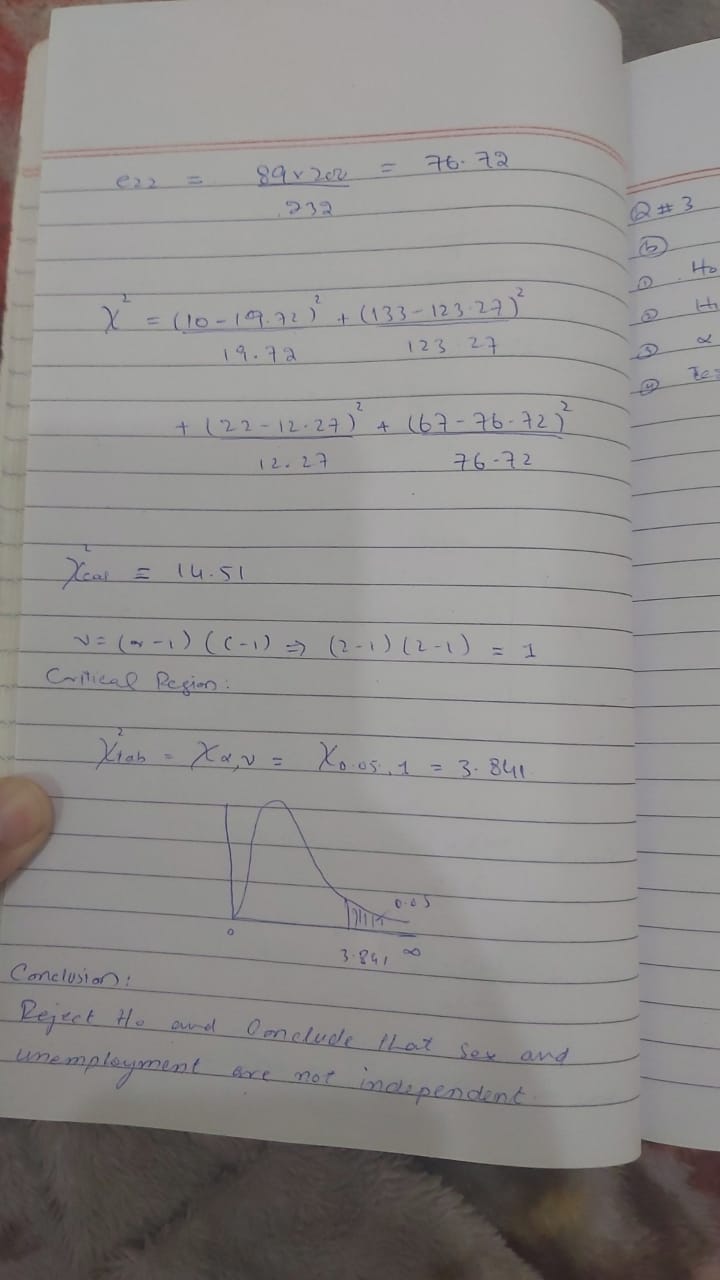 e22 = 89 x 200 = 76.72
232
χ² = (10-19.72)² + (133-123.27)²
19.72 123.27
+ (22-12.27)² + (67-76.72)²
12.27 76.72
χ²cal = 14.51
ν = (r-1) (c-1) => (2-1) (2-1) = 1
Critical Region:
χ²tab = χα,ν = χ0.05,1 = 3.841
0.05
0
3.841 ∞
Conclusion:
Reject Ho and Conclude that sex and
unemployment are not independent.
Q # 3
(b)
① Ho
② H1
③ α
④